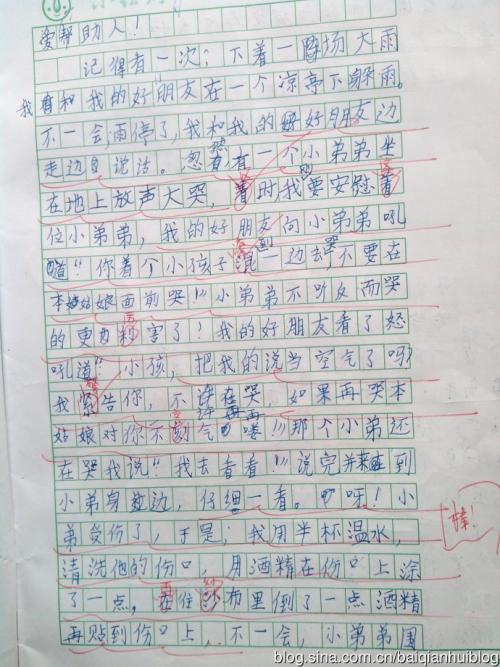 爱帮助人!
记得有一次;下着一场大雨
我和我的好朋友在一个凉亭下躲雨。
不一会,雨停了,我和我的好朋友边
走边说话。忽然有一个小弟弟坐
在地上放声大哭,着时我要安慰着
位小弟弟,我的好朋友向小弟弟吼
道“你着个小孩子滚一边去,不要在
本姑娘面前哭!”小弟弟不听反而哭
的更厉害了!我的好朋友看了怒
吼道“小孩,把我的说当空气了吗?
我警告你,不许在哭,如果再哭本
姑娘对你不客气喽!”那个小弟还
在哭我说“我去看看!”说完并来到
小弟身边,仔细一看。呀!小
弟受伤了,于是;我用半杯温水,
清洗他的伤口,用酒精在伤口上涂
了一点,再住纱布里倒了一点酒精
再贴到伤口上,不一会,小弟弟围
棒!
blog.sina.com.cn/baiqianhuiblog